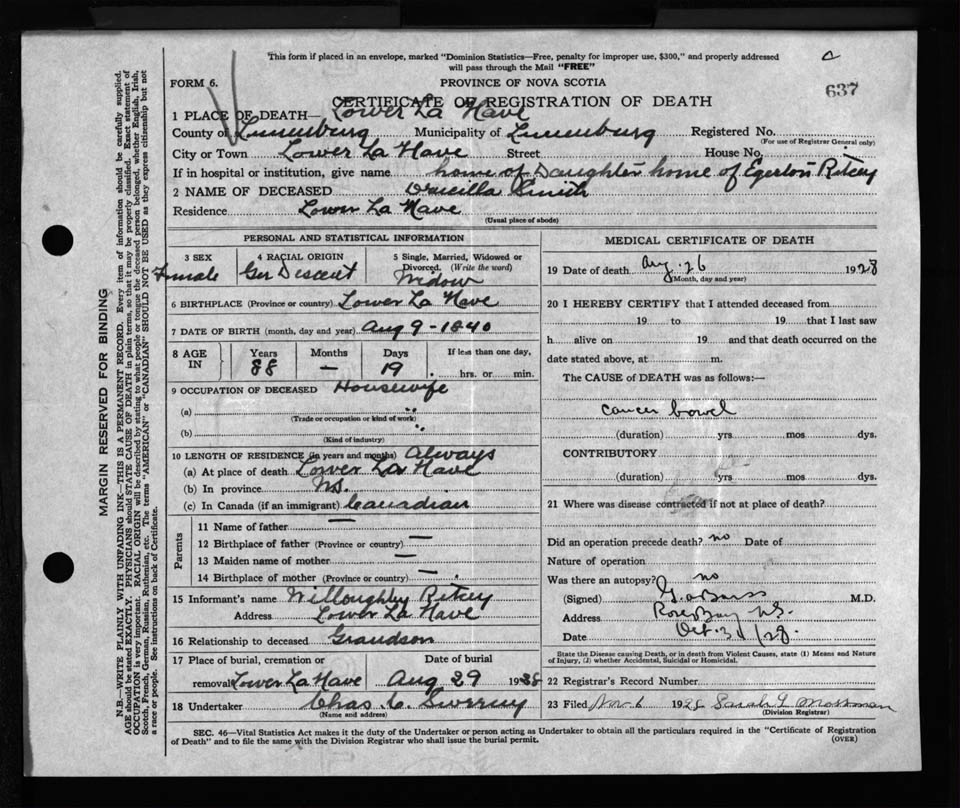 This form if placed in an envelope, marked "Dominion Statistics—Free, penalty for improper use, $300," and properly addressed
will pass through the Mail "FREE"
FORM 6.
PROVINCE OF NOVA SCOTIA
637
CERTIFICATE OF REGISTRATION OF DEATH
1 PLACE OF DEATH— Lower La Have
County of Lunenburg Municipality of Lunenburg Registered No.
(For use of Registrar General only)
City or Town Lower La Have Street House No.
If in hospital or institution, give name home of Daughter home of Egerton Ritcey
2 NAME OF DECEASED Drucilla Smith
Residence Lower La Have
(Usual place of abode)
PERSONAL AND STATISTICAL INFORMATION
3 SEX 4 RACIAL ORIGIN 5 Single, Married, Widowed or
Divorced. (Write the word)
Female Ger Descent Widow
6 BIRTHPLACE (Province or country) Lower La Have
7 DATE OF BIRTH (month, day and year) Aug 9 - 1840
8 AGE IN Years Months Days If less than one day,
88 — 19 hrs. or min.
9 OCCUPATION OF DECEASED Housewife
(a) "
(Trade or occupation or kind of work)
(b) "
(Kind of industry)
10 LENGTH OF RESIDENCE (in years and months) Always
(a) At place of death Lower La Have
(b) In province NS.
(c) In Canada (if an immigrant) Canadian
Parents
11 Name of father —
12 Birthplace of father (Province or country) —
13 Maiden name of mother —
14 Birthplace of mother (Province or country) —
15 Informant's name Willoughby Ritcey
Address Lower La Have
16 Relationship to deceased Grandson
17 Place of burial, cremation or Date of burial
removal Lower La Have Aug 29 1928
18 Undertaker Chas. C.
(Name and address)
MEDICAL CERTIFICATE OF DEATH
19 Date of death Aug. 26 1928
(Month, day and year)
20 I HEREBY CERTIFY that I attended deceased from
19 to 19 that I last saw
h alive on 19 and that death occurred on the
date stated above, at m.
The CAUSE of DEATH was as follows:—
cancer bowel
(duration) yrs mos dys.
CONTRIBUTORY
(duration) yrs mos dys.
21 Where was disease contracted if not at place of death?
Did an operation precede death? no Date of
Nature of operation
Was there an autopsy? no
(Signed) M.D.
Address Rose Bay N.S.
Date Oct. /28.
State the Disease causing Death, or in death from Violent Causes, state (1) Means and Nature
of Injury, (2) whether Accidental, Suicidal or Homicidal.
22 Registrar's Record Number
23 Filed Nov. 6 1928 Sarah
(Division Registrar)
SEC. 46—Vital Statistics Act makes it the duty of the Undertaker or person acting as Undertaker to obtain all the particulars required in the "Certificate of Registration
of Death" and to file the same with the Division Registrar who shall issue the burial permit.
(OVER)
MARGIN RESERVED FOR BINDING
N.B.—WRITE PLAINLY WITH UNFADING INK—THIS IS A PERMANENT RECORD. Every item of information should be carefully supplied.
AGE should be stated EXACTLY. PHYSICIANS should STATE CAUSE OF DEATH in plain terms, so that it may be properly classified. Exact statement of
OCCUPATION is very important. RACIAL ORIGIN will be described by stating to what people or tongue the deceased person belonged, whether English, Irish,
Scotch, French, German, Russian, Ruthenian, etc. The terms "AMERICAN" or "CANADIAN" SHOULD NOT BE USED as they express citizenship but not
a race or people. See instructions on back of Certificate.